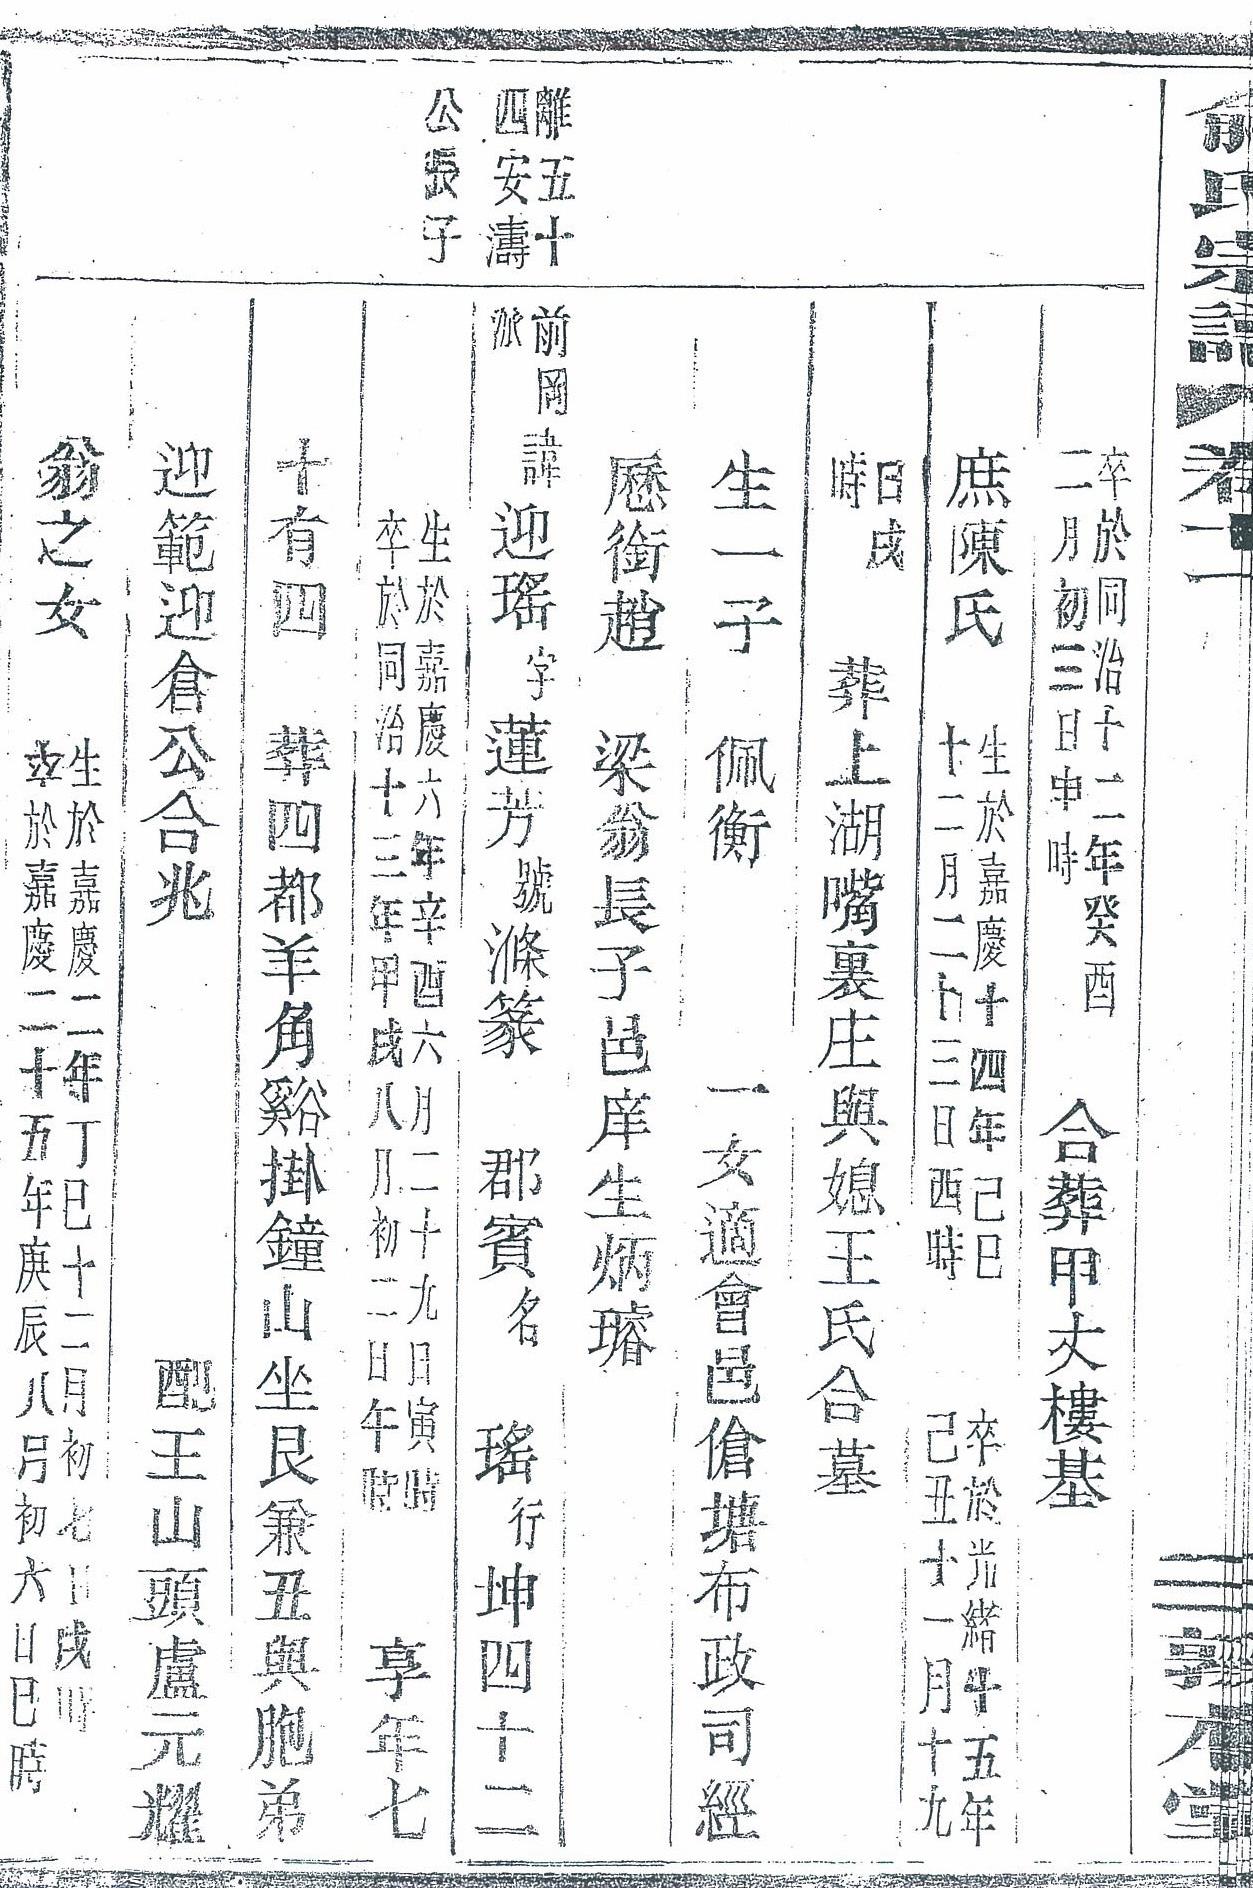 俞氏宗譜
卷十一
敦本堂
卒於同治十二年癸酉
二月初三日申時
合葬甲丈樓基
庶陳氏
生於嘉慶十四年己巳
十二月二十三日酉時
卒於光緒十五年
己丑十一月十九
日戌
時
葬上湖嘴裏庄與媳王氏合墓
生一子 佩衡 一女適會邑傖塘布政司經
歷銜趙 梁翁長子邑庠生炳璿
離五十
四安濤
公長子
前岡
派
諱迎瑤字蓮芳號滌篆 郡賓名 瑤行坤四十二
生於嘉慶六年辛酉六月二十九日寅時
卒於同治十三年甲戌八月初二日午時
享年七
十有四 葬四都羊角谿掛鐘山坐艮兼丑與胞弟
迎範迎倉公合兆 配王山頭盧元燿
翁之女
生於嘉慶二年丁巳十二月初七日戌時
卒於嘉慶二十五年庚辰八月初六日巳時